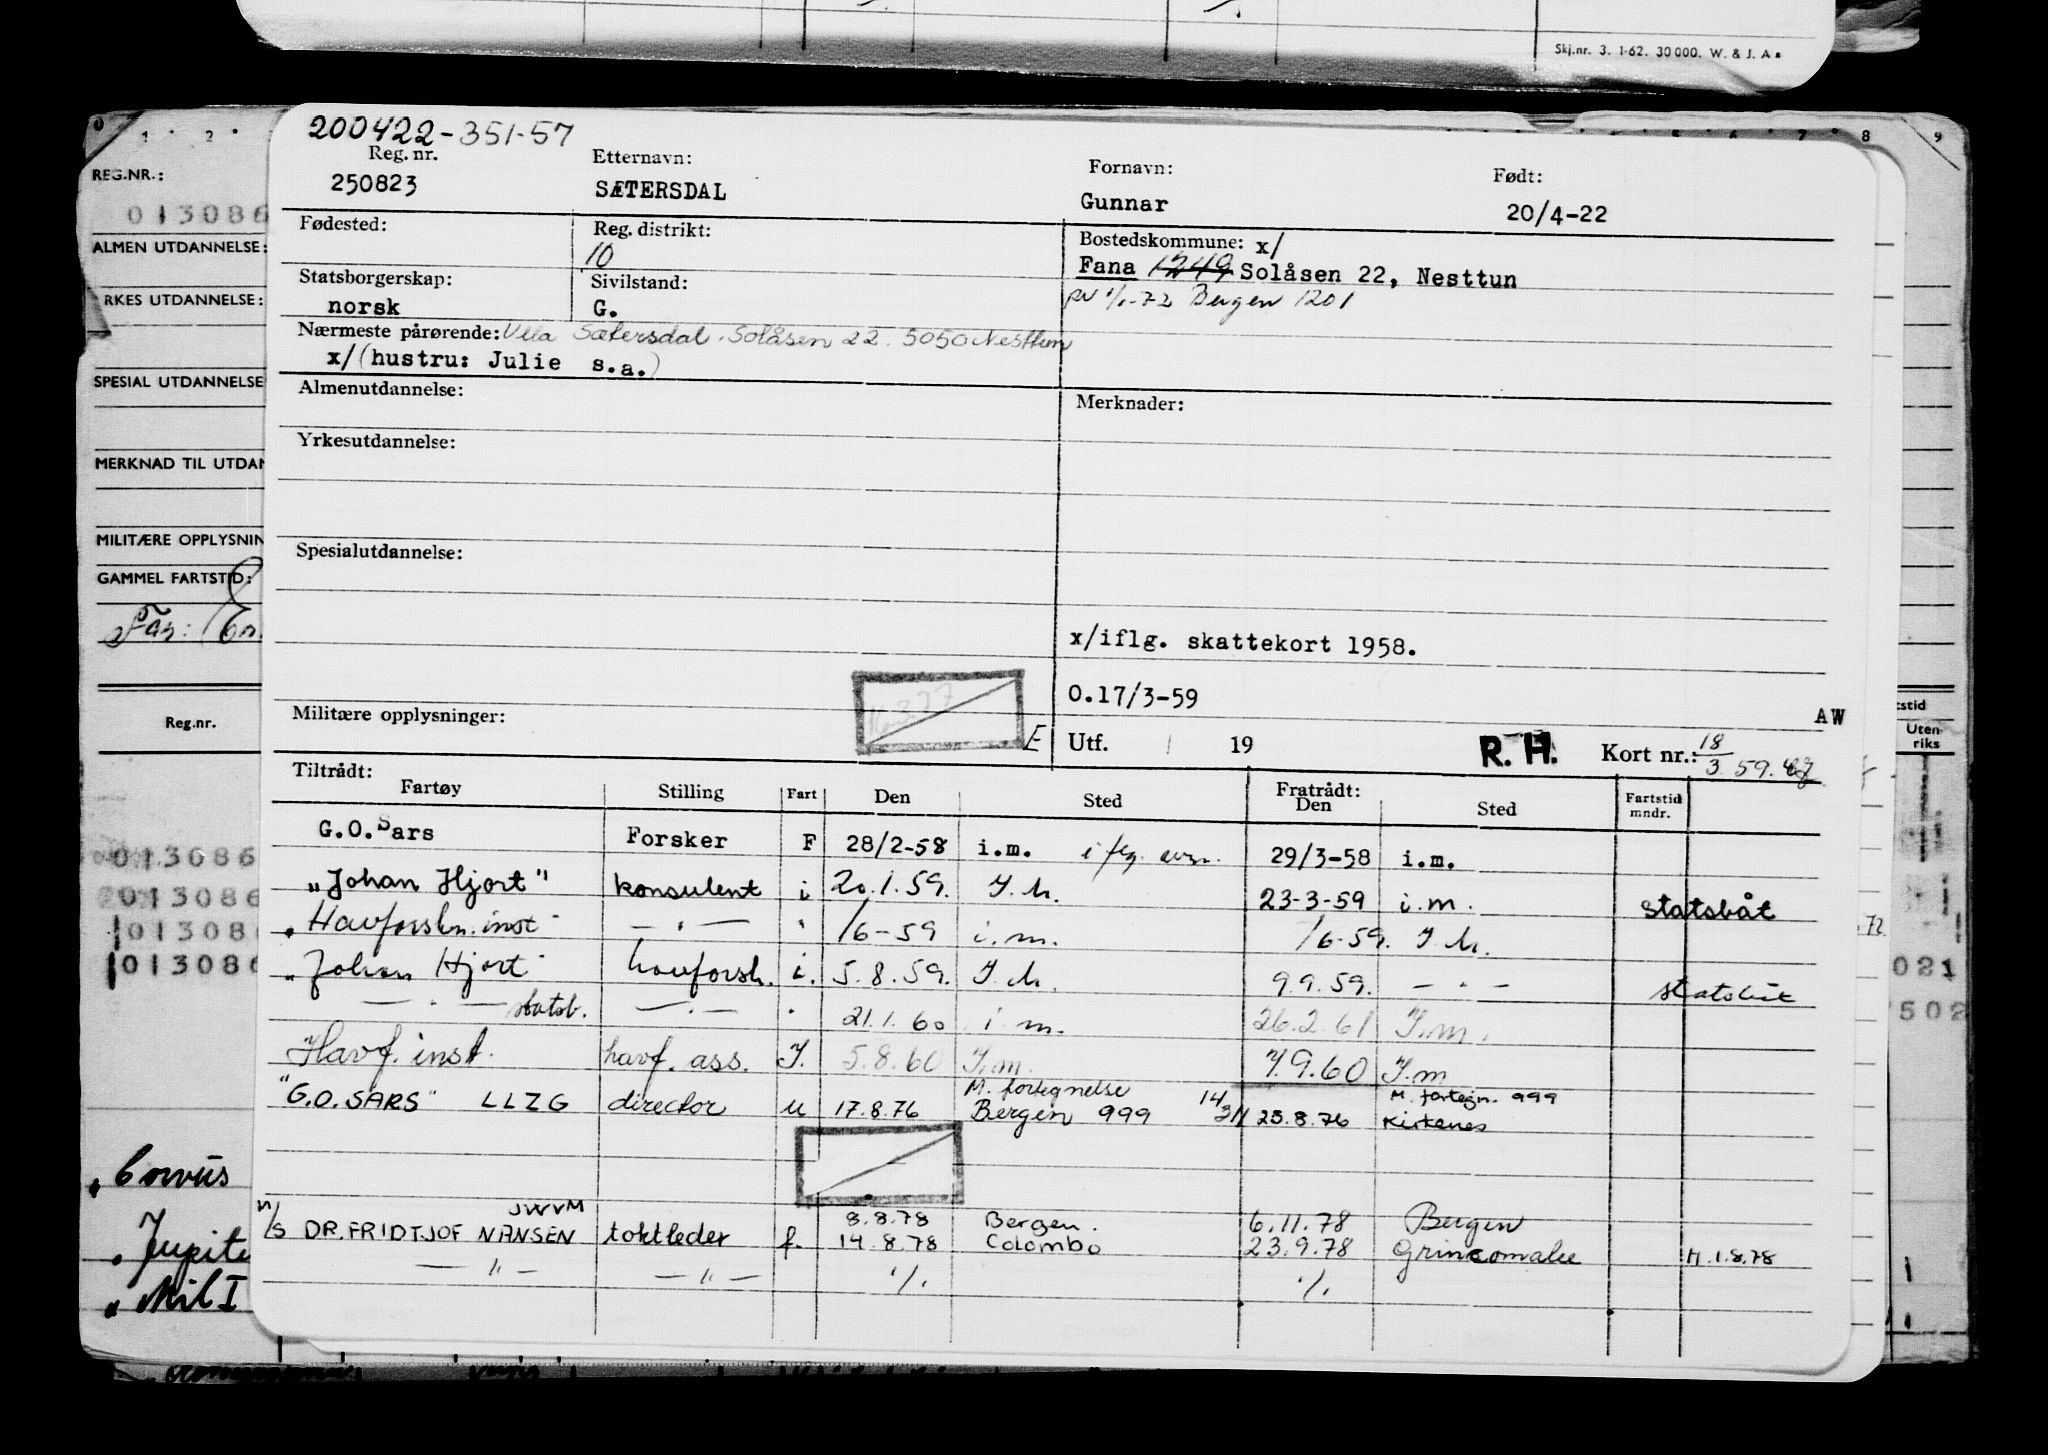 Skj.nr. 3. 1-62. 30 000. W. & J. A s
1 2 5 6 7 8 9
REG.NR.:
013086
ALMEN UTDANNELSE:
RKES UTDANNELSE:
SPESIAL UTDANNELSE
MERKNAD TIL UTDAN
MILITÆRE OPPLYSNIN
GAMMEL FARTSTID:
Far:
Reg.nr.
013086
013086
013086
013086
"Corvus
"Jupite
"Mil I
200422-351-57
Reg. nr. Etternavn: Fornavn: Født:
250823 SÆTERSDAL Gunnar 20/4-22
Fødested: Reg. distrikt: Bostedskommune: x/
10 Fana 1249 Solåsen 22, Nesttun
Statsborgerskap: Sivilstand:
norsk G. pv 1/1-72 Bergen 1201
Nærmeste pårørende: Vella Sætersdal. Solåsen 22. 5050 Nesttun
x/(hustru: Julie s.a.)
Almenutdannelse: Merknader:
Yrkesutdannelse:
Spesialutdannelse:
x/iflg. skattekort 1958.
16.3.77
O.17/3-59
Militære opplysninger: AW
E Utf. 19 R. H. Kort nr.: 18/3 59.
Tiltrådt: Fratrådt:
Fartøy Stilling Fart Den Sted Den Sted Fartstid mndr.
G.O.Sars Forsker F 28/2-58 i.m. iflg. 29/3-58 i.m.
"Johan Hjort" konsulent i 20.1.59. I.M. 23-3-59 i.m. statsbåt
"Havforskn. inst" — " — " /6-59 i.m. /6-59. I.M.
"Johan Hjort" havforsk. i. 5.8.59. I.M. 9.9.59. — " — statsbåt
— " — statsb. — " — " 21.1.60 i.m. 26.2.61 I.m.
Havf. inst. havf. ass. I. 5.8.60 I.m. 7.9.60 I.m
M. fortegnelse 14 M. fortegn. 999
"G.O. SARS" LLZG director u 17.8.76 Bergen 999 311 25.8.76 Kirkenes
JWVM 8.8.78 Bergen. 6.11.78 Bergen
M/S DR. FRIDTJOF NANSEN toktleder f. 14.8.78 Colombo 23.9.78 Grincomalee H. 1.8.78
— " — — " — ./. ./.
tstid
Uten-
riks
72
021
502